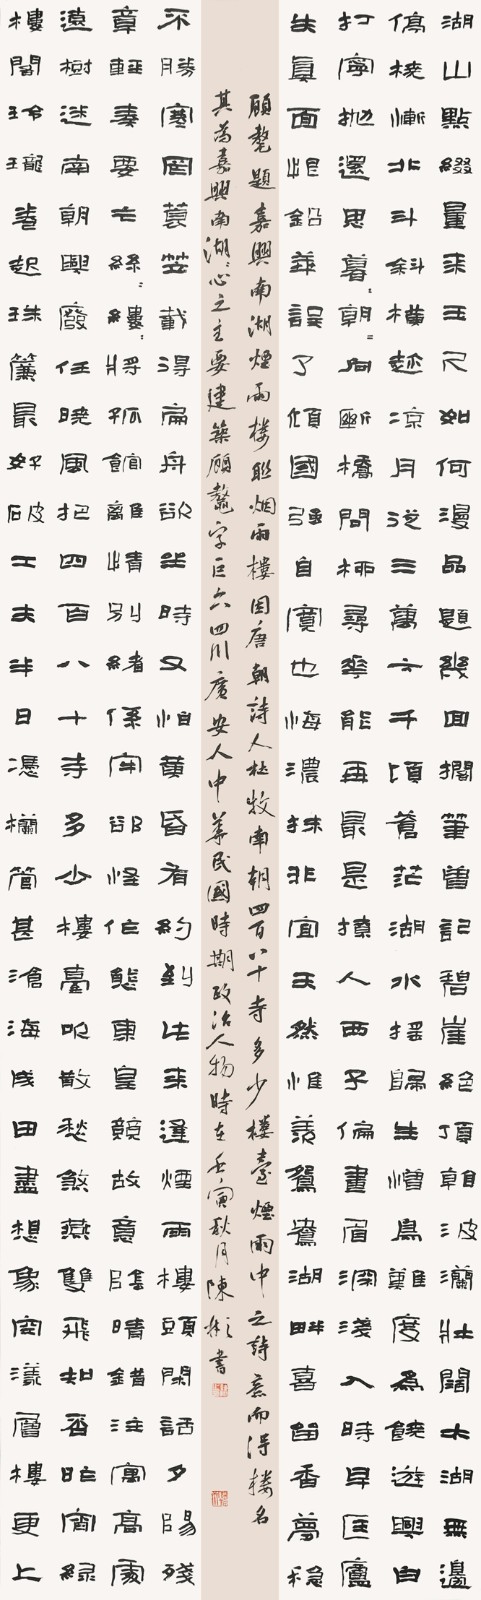 湖山點綴量來玉尺如何漫品題幾回擱筆曾記碧崖絕頂朝波瀾壯闊太湖無邊
停橈漸北斗斜橫趁涼月從三萬六千頃蒼茫湖水摇歸生憎鳥難度為饒遊興白
打寧抛還思暮〻朝〻向斷橋問柳尋花能再最是撩人西子偏畫眉深淺入時早匡廬
失真面恨鉛華誤了傾國强自寬也悔濃抹非宜天然惟羨鴛鴦湖畔喜留香夢穩
樓閣玲瓏卷起珠簾最好破工夫半日憑欄管甚滄海成田盡想象空濛層樓更上
遠樹迷南朝興廢任曉風把四百八十寺多少樓臺吹散愁煞燕雙飛知否昨宵綠
章輕奏要亡絲〻縷〻將孤館離情別緒係牢卻怪他態東皇競故意陰晴錯注寓高處
不勝寒罔蓑笠載得扁舟欲坐時又怕黃昏有約到此來逢煙雨樓頭閑話夕陽殘
顧鼇題嘉興南湖煙雨樓聯烟雨樓因唐朝詩人杜牧南朝四百八十寺多少樓臺煙雨中之詩意而得樓名
其為嘉興南湖〻心之主要建築顧鼇字巨六四川廣安人中華民國時期政治人物時在壬寅秋月陳彬書